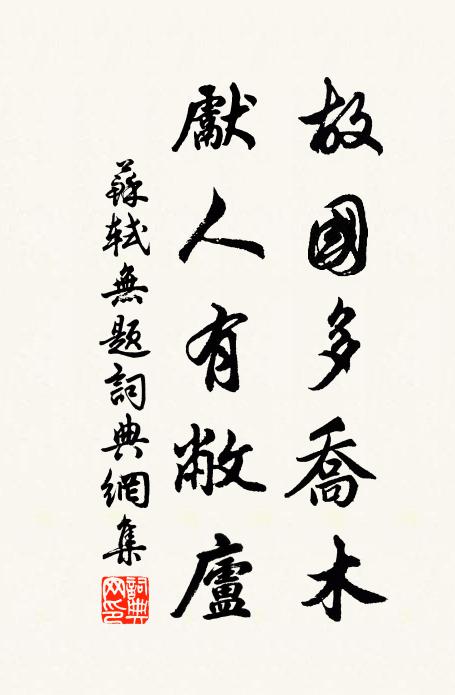 故國多喬木
獻人有敝廬
蘇軾無題詞典網集
詞典网印